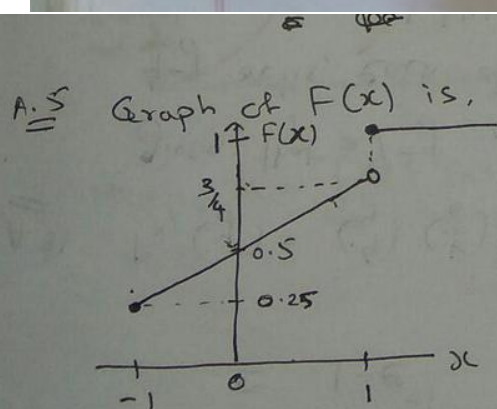 A.5 Graph of F(x) is,
1 F(x)
3/4
0.5
0.25
x
-1 0 1